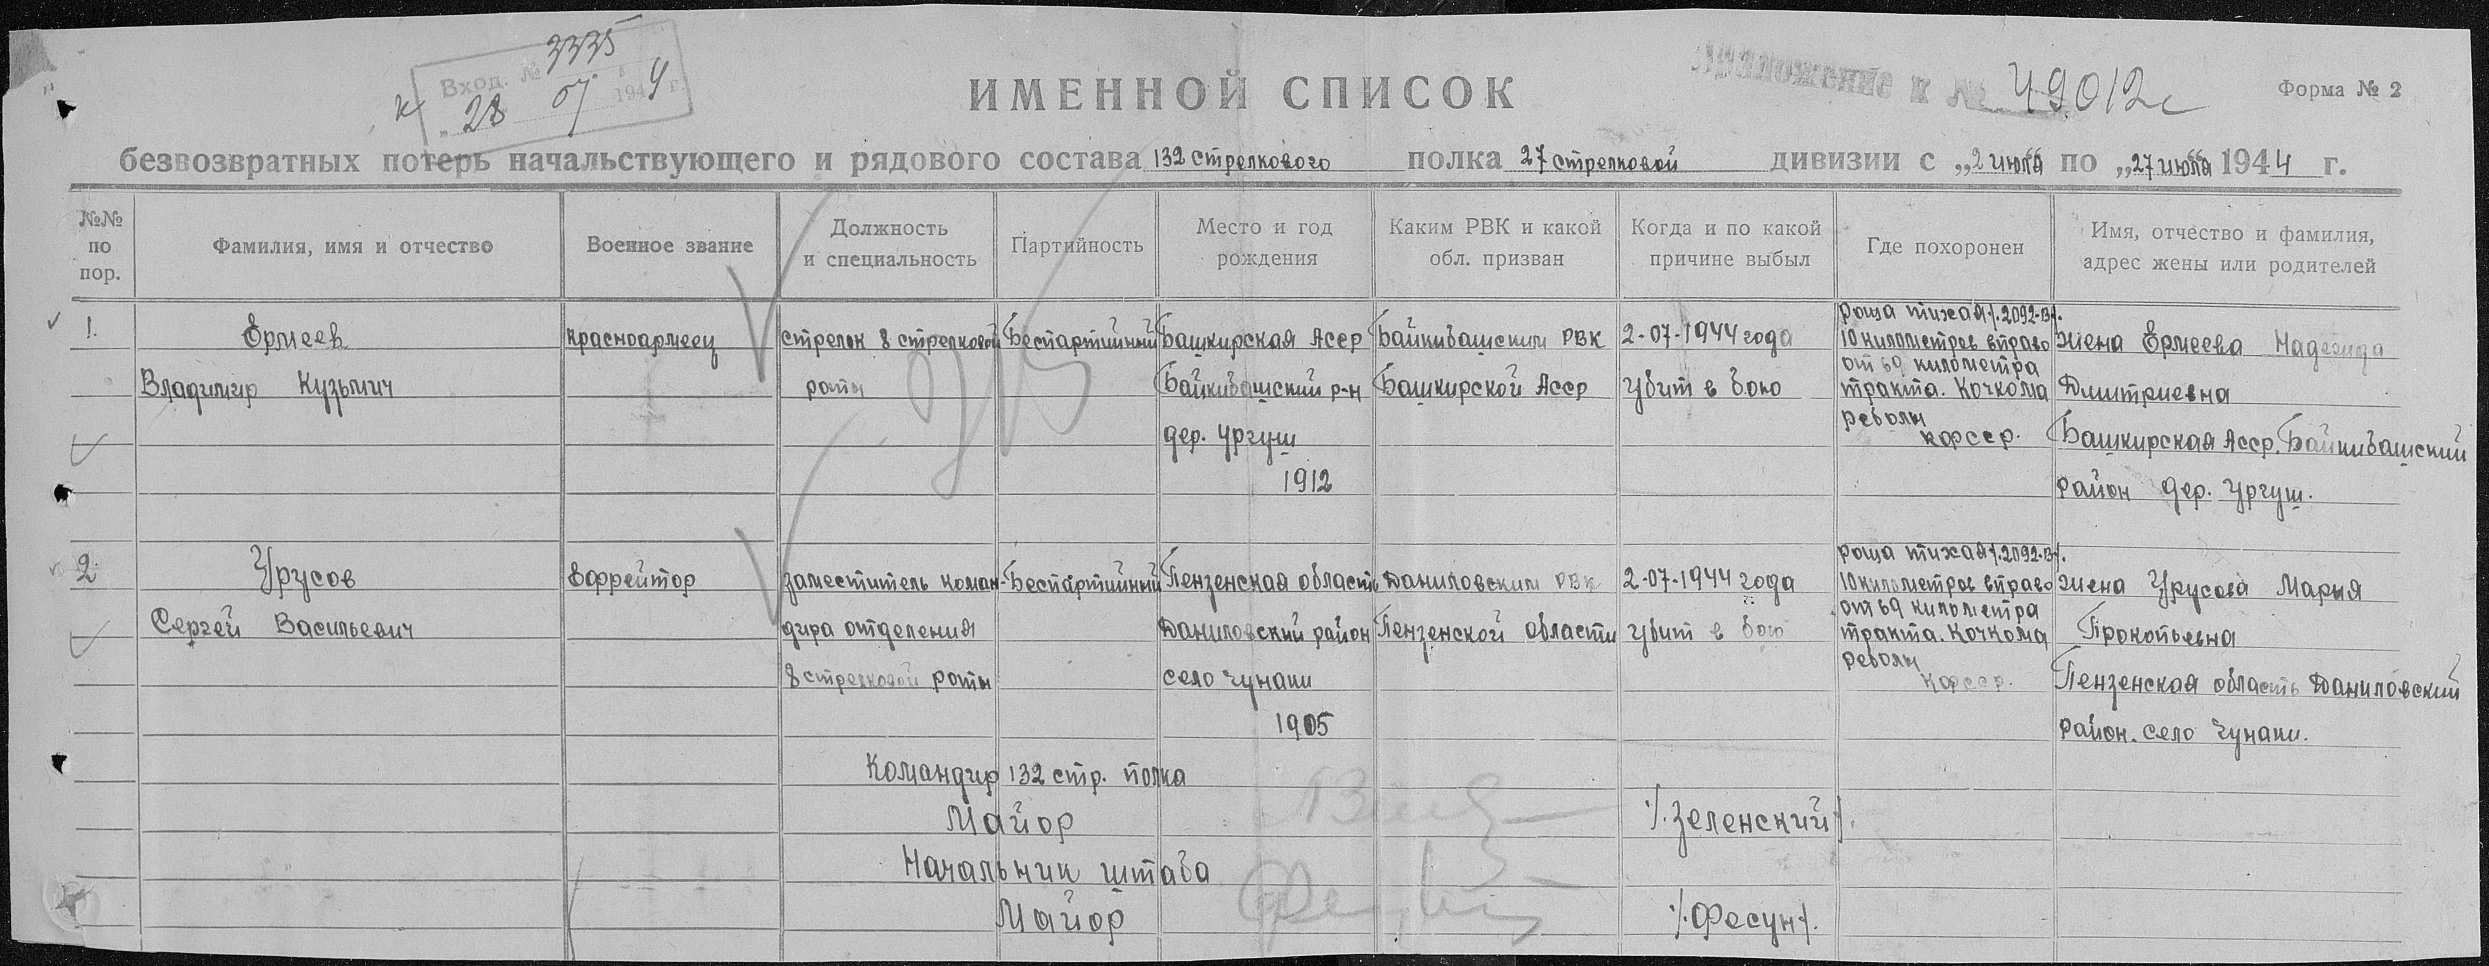 Вход. № 3335
28 07 1944 г.
Приложение к № 49012с
Форма № 2
ИМЕННОЙ СПИСОК
безвозвратных потерь начальствующего и рядового состава 132 стрелкового полка 27 стрелковой дивизии с „2 июля“ по „27 июля“ 1944 г.
№№ по пор.
Фамилия, имя и отчество
Военное звание
Должность и специальность
Партийность
Место и год рождения
Каким РВК и какой обл. призван
Когда и по какой причине выбыл
Где похоронен
Имя, отчество и фамилия, адрес жены или родителей
1.
Ермеев
Владимир Кузьмич
красноармеец
стрелок 8 стрелковой
роты
Беспартийный
Башкирская Асср
Байкибашский р-н
дер. Ургуш
1912
Байкибашским РВК
Башкирской Асср
2-07-1944 года
убит в бою
роща тихая /.2092-В/.
10 километров вправо
от 69 километра
тракта. Кочкома
реболы
кфсср.
жена Ермеева Надежида
Дмитриевна
Башкирская Асср. Байкибашский
район дер. Ургуш.
2
Урусов
Сергей Васильевич
ефрейтор
заместитель коман-
дира отделения
8 стрелковой роты
Беспартийный
Пензенская область
Даниловский район
село Чунаки
1905
Даниловским РВК
Пензенской области
2-07-1944 года
убит в бою
роща тихая /.2092-В/.
10 километров вправо
от 69 километра
тракта. Кочкома
реболы
кфсср.
жена Урусова Марья
Прокопьевна
Пензенская область Даниловский
район. село Чунаки.
Командир 132 стр. полка
Майор
/.Зеленский/.
Начальник штаба
Майор
/.Фесун/.